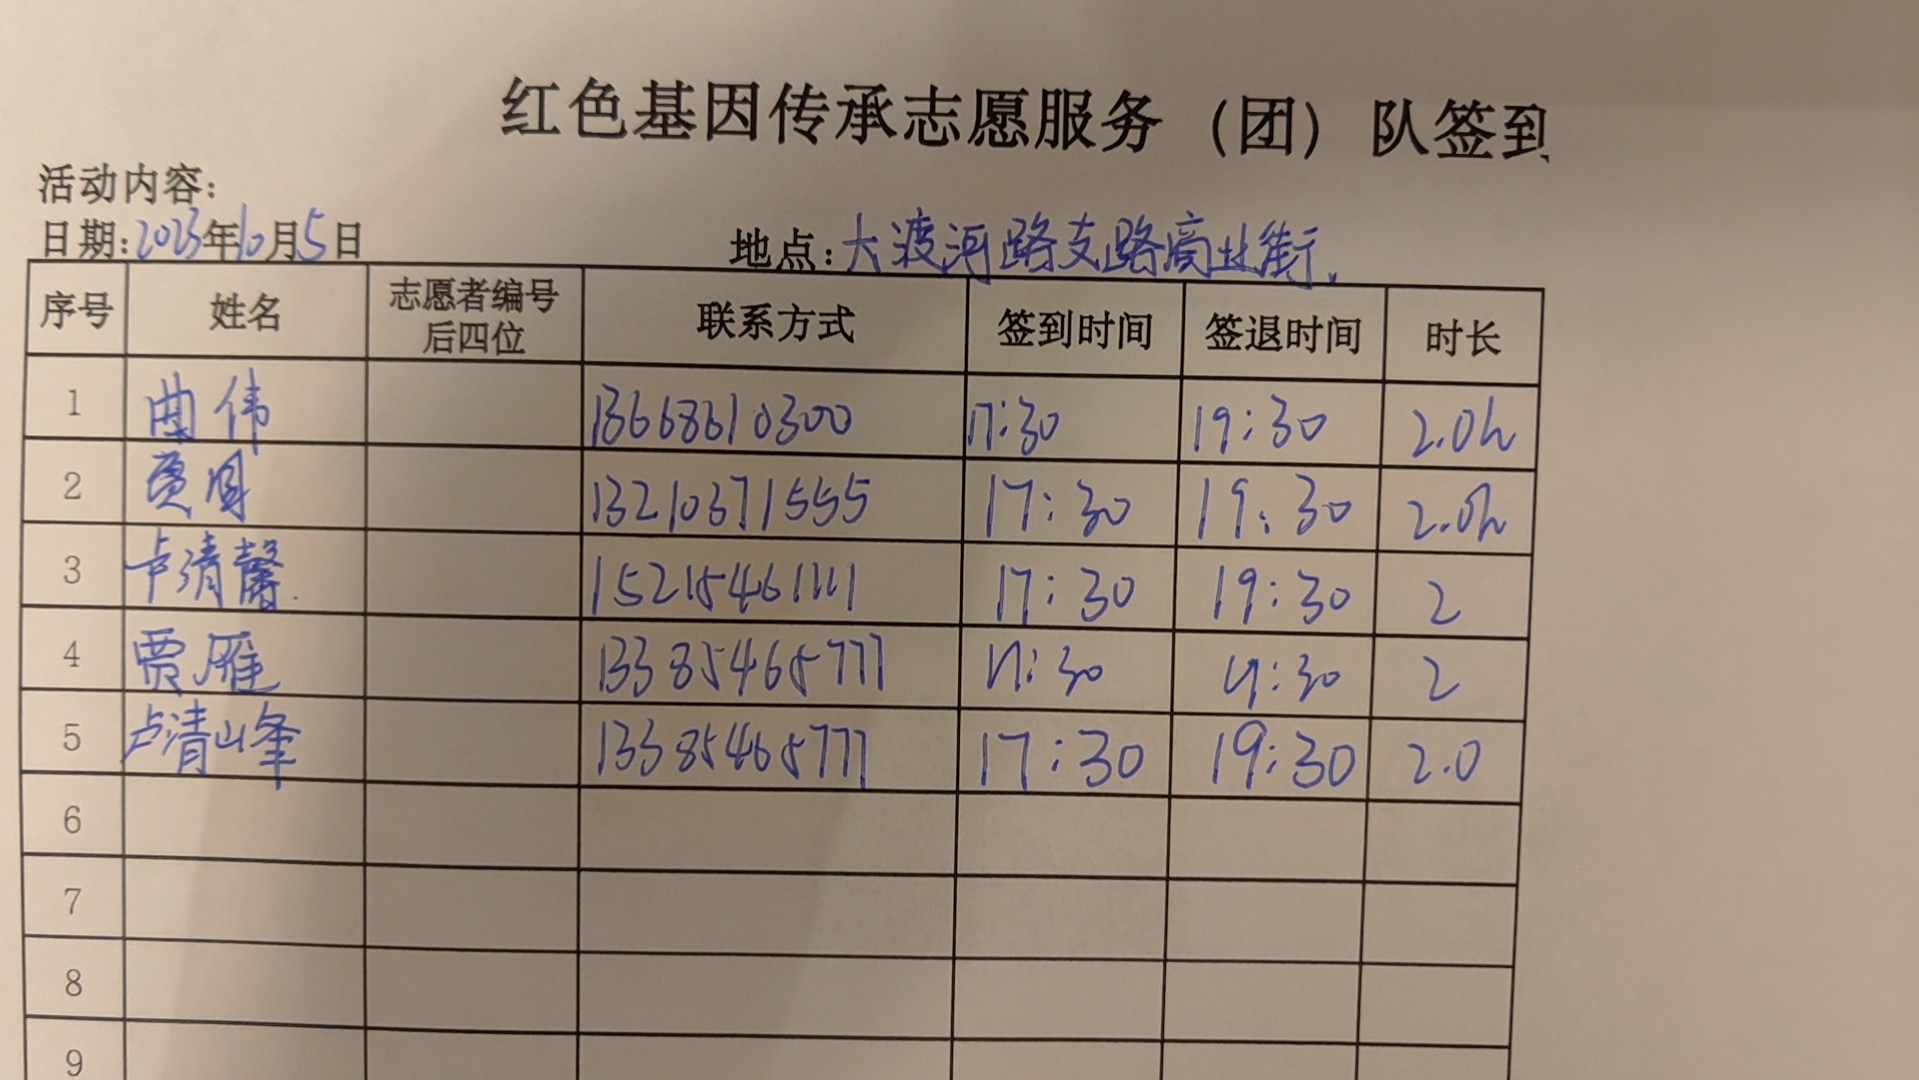 红色基因传承志愿服务（团）队签到
活动内容:
日期:2023年10月5日 地点:大渡河路支路商业街.
序号 姓名 志愿者编号后四位 联系方式 签到时间 签退时间 时长
1 曲伟 13668610300 17:30 19:30 2.0h
2 13210371555 17:30 19:30 2.0h
3 卢清馨. 15215461111 17:30 19:30 2
4 贾雁 13385465777 17:30 19:30 2
5 卢清峰 13385465777 17:30 19:30 2.0
6
7
8
9